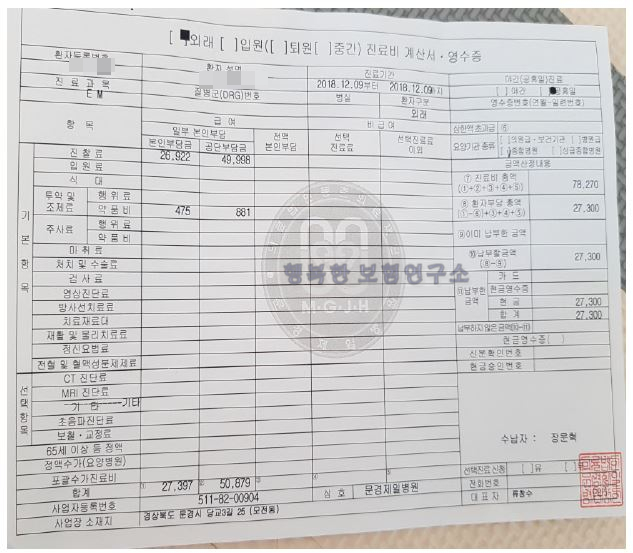 [ ]외래 [ ]입원([ ]퇴원[ ]중간) 진료비 계산서·영수증
환자등록번호 환자 성명 진료기간 야간(공휴일)진료
2018.12.09부터 2018.12.09까지 [ ]야간 [ ]공휴일
진료과목 질병군(DRG)번호 병실 환자구분 영수증번호(연월-일련번호)
EM 외래
항목 급여 비급여 상한액 초과금 ⑥
일부 본인부담 전액 본인부담 선택 진료료 선택진료료 이외
본인부담금 공단부담금
요양기관 종류 [ ]의원급·보건기관 [ ]병원급
[ ]종합병원 [ ]상급종합병원
금액산정내용
기본항목
진찰료 26,922 49,998
입원료
식대
투약 및 조제료 행위료
약품비 475 881
주사료 행위료
약품비
마취료
처치 및 수술료
검사료
영상진단료
방사선치료료
치료재료대
재활 및 물리치료료
정신요법료
전혈 및 혈액성분제제료
선택항목
CT 진단료
MRI 진단료
기타
초음파진단료
보철·교정료
65세 이상 등 정액
정액수가(요양병원)
포괄수가진료비
합계 ① 27,397 ② 50,879
⑦ 진료비 총액
(①+②+③+④+⑤) 78,270
⑧ 환자부담 총액
(①-⑥)+③+④+⑤ 27,300
⑨이미 납부한 금액
⑩납부할금액
(⑧-⑨) 27,300
⑪납부한 금액 카드
현금영수증
현금 27,300
합계 27,300
납부하지않은금액(⑩-⑪)
현금영수증( )
신분확인번호
현금승인번호
수납자 : 장문혁
선택진료 신청 [ ]유 [ ]
전화번호
사업자등록번호 511-82-00904 상호 문경제일병원
대표자
사업장 소재지 경상북도 문경시 당교3길 25 (모전동)
행복한 보험연구소
M·G·J·H